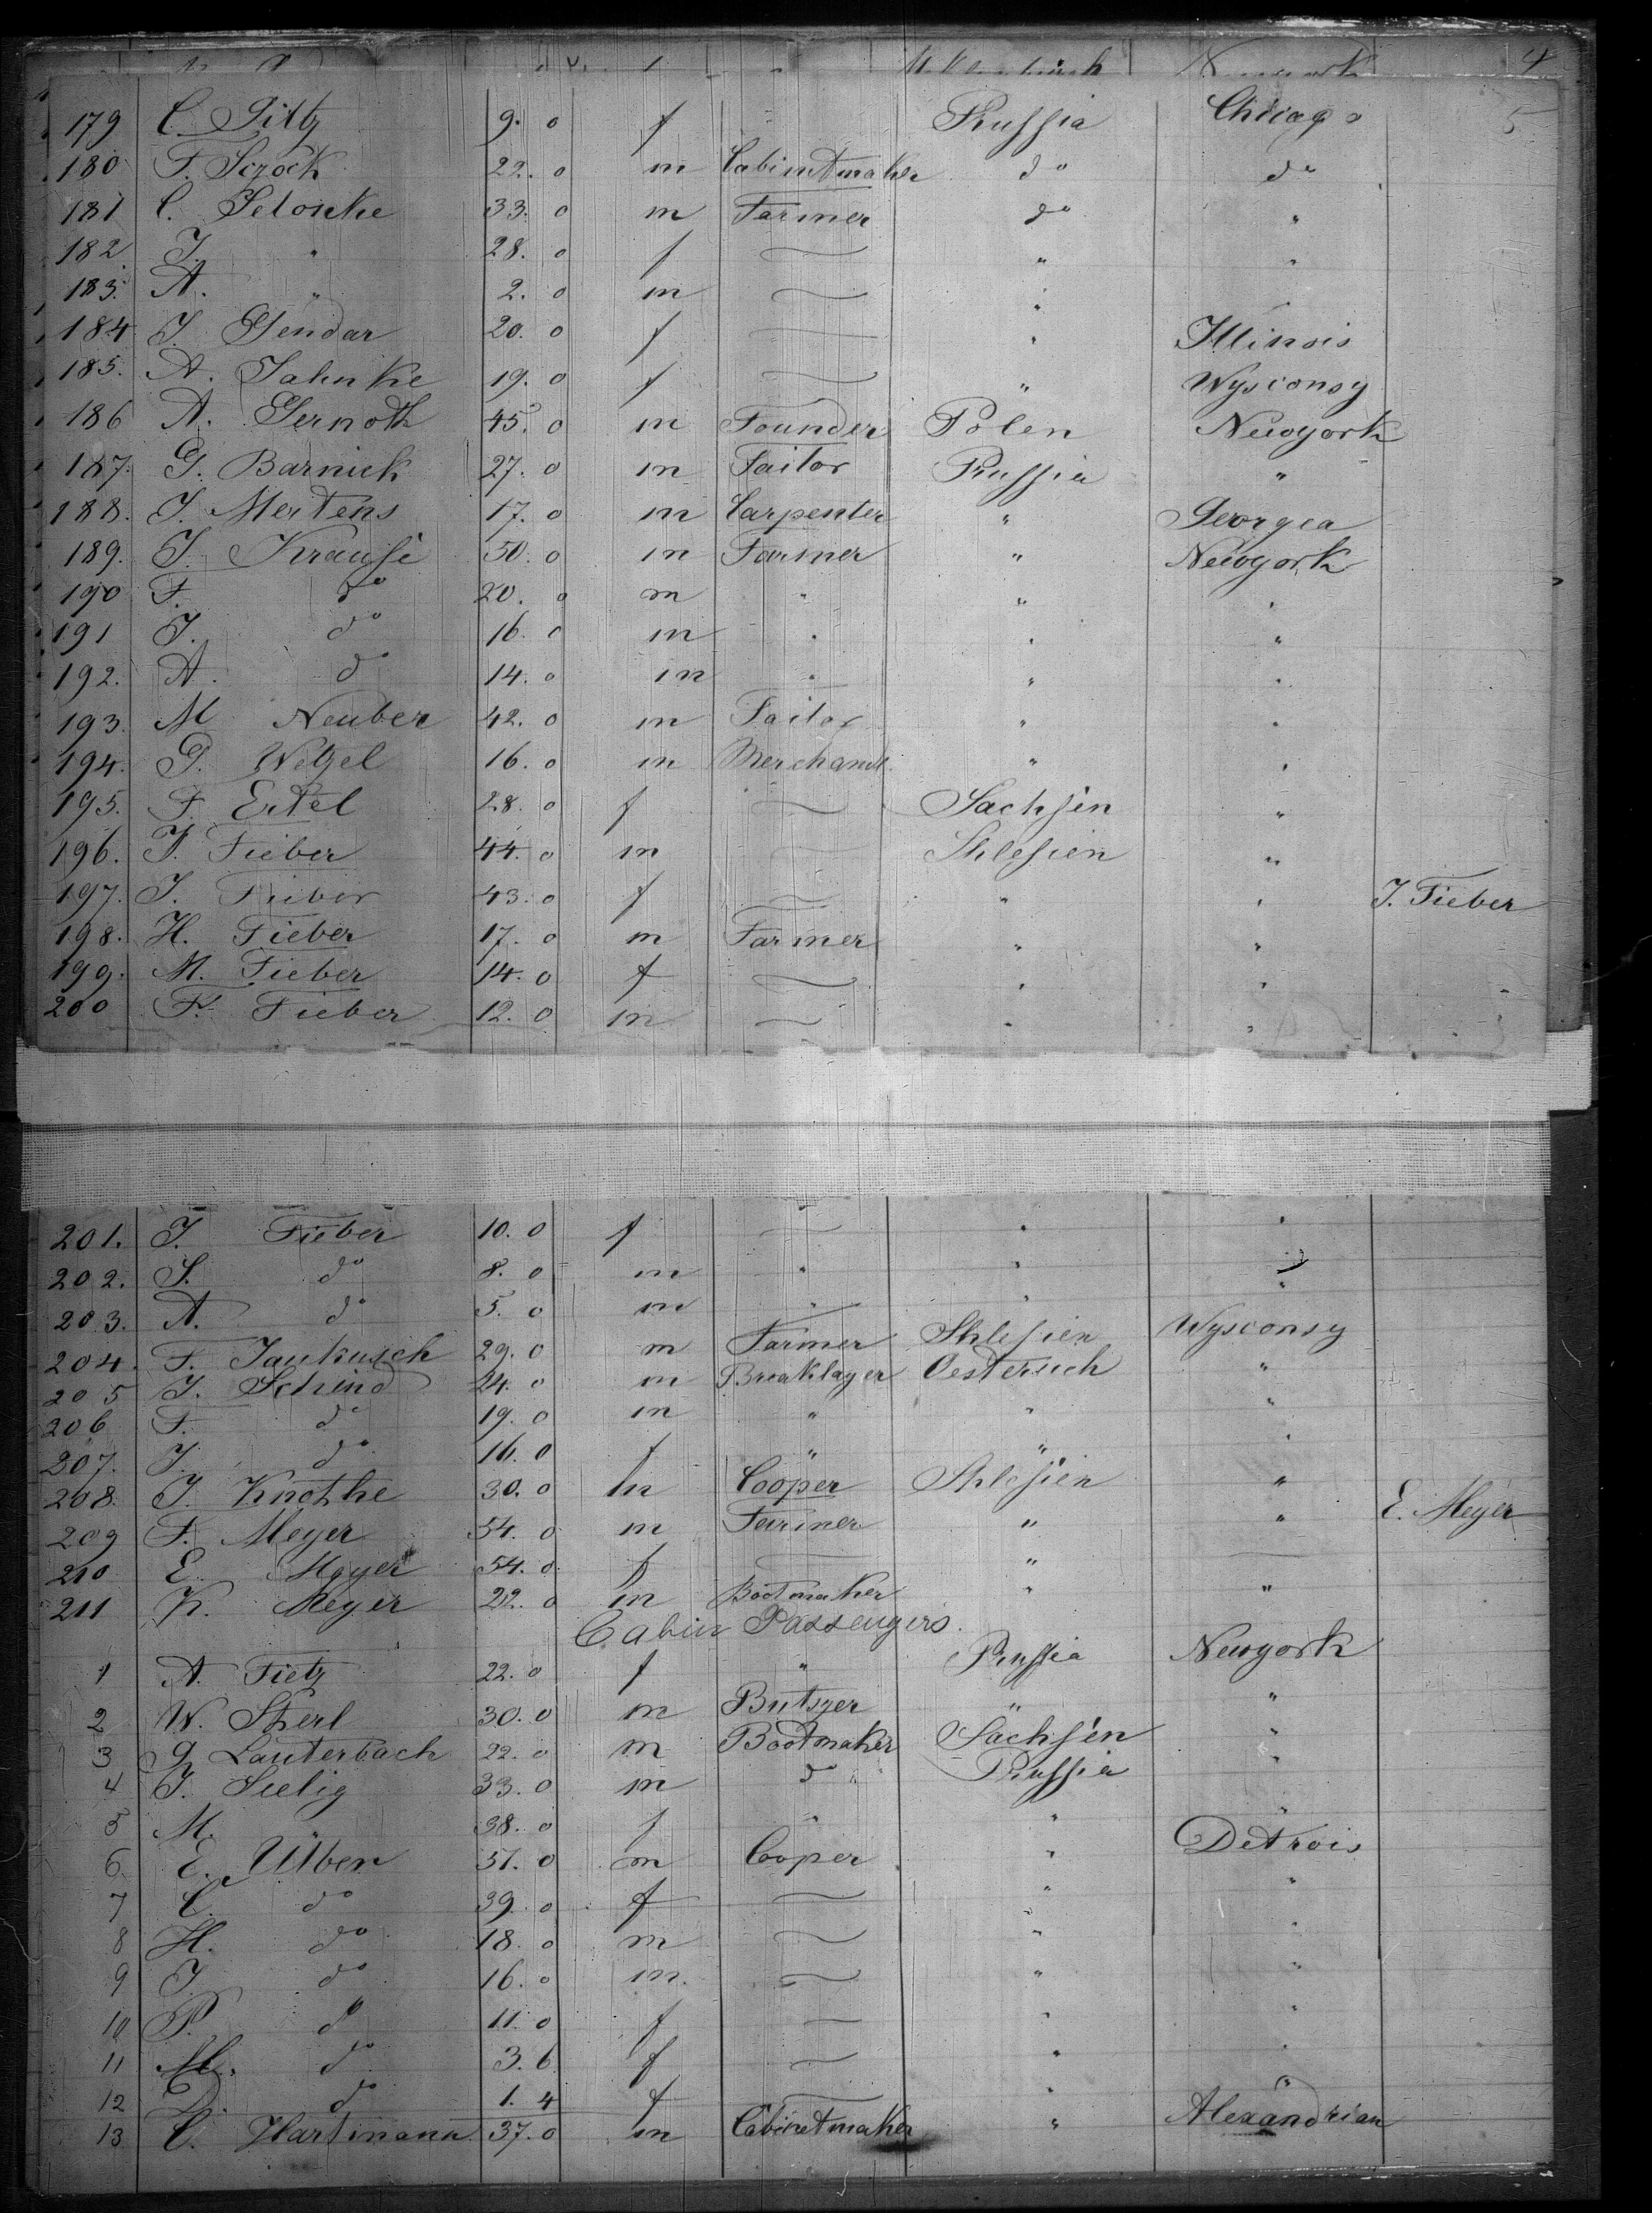 4
179 C. Piltz 9. 0 f " Prussia Chicago 5
180 F. Sczock 22. 0 m Cabinetmaker do do
181 C. Selonke 33. 0 m Farmer do "
182 J. " 28. 0 f — " "
183. A. " 2. 0 m — " "
184 J. Gendar 20. 0 f — " Illinois
185. A. Jahnke 19. 0 f — " Wysconsy
186 A. Gernoth 45. 0 m Founder Polen Newyork
187. G. Barnick 27. 0 m Tailor Prussia "
188. J. Mertens 17. 0 m Carpenter " Georgea
189. J. Krause 50. 0 m Farmer " Newyork
190 F. do 20. 0 m " " "
191 J. do 16. 0 m " " "
192. A. do 14. 0 m " " "
193. M Neuber 42. 0 m Tailor " "
194. G. Wetzel 16. 0 m Merchand. " "
195. F. Ertel 28. 0 f — Sachsen "
196. J. Fieber 44. 0 m — Shlesien "
197. J. Fieber 43. 0 f — " " J. Fieber
198. H. Fieber 17. 0 m Farmer " "
199. M. Fieber 14. 0 f — " "
200 F. Fieber 12. 0 m — " "
201. J. Fieber 10. 0 f — " "
202. S. do 8. 0 m " " "
203. A. do 5. 0 m " "
204. F. Jankusch 29. 0 m Farmer Shlesien Wysconsy
205 J. Schind 24. 0 m Breaklayer Oestereich "
206 F. do 19. 0 m " " "
207. J. do 16. 0 f " " "
208. J. Knothe 30. 0 m Cooper Shlesien "
209 F. Meyer 54. 0 m Farmer " " E. Meyer
210 E. Meyer 54. 0. f — " —
211 K. Meyer 22. 0 m Bootmaker " "
Cabin Passengers.
1 A. Tietz 22. 0 f " Prussia Newyork
2 W. Sherl 30. 0 m Butsger " "
3 G. Lauterbach 22. 0 m Bootmaker Sachsen "
4 J. Seelig 33. 0 m do " Prussia "
5 M. 38. 0 f " " "
6 E. Ulben 51. 0 m Cooper " Detrois
7 C. do 39. 0 f — " "
8 H. do 18. 0 m — " "
9 J. do 16. 0 m. — " "
10 P. do 11. 0 f — " "
11 M. do 3. 6 f — " "
12 do 1. 4 f — " "
13 C. Hartmann 37. 0 m Cabinetmaker " Alexandrian